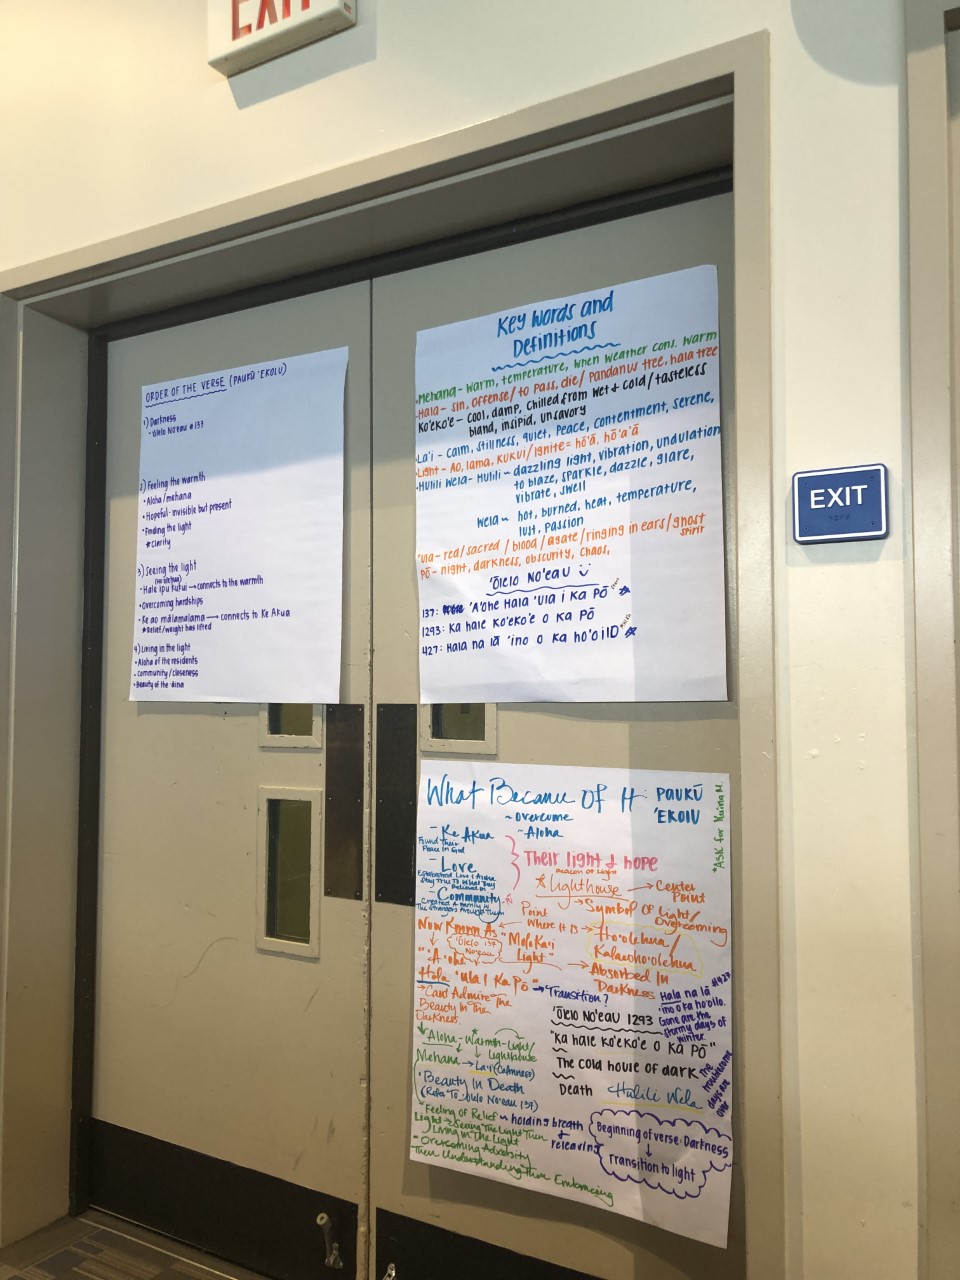 EXIT
ORDER OF THE VERSE (PAUKŪ 'EKOLU)
1) Darkness
- 'Ōlelo No'eau #137
2) Feeling the warmth
• Aloha/mehana
• Hopeful- invisible but present
• Finding the light
* Clarity
3) Seeing the light
• Hale ipu kukui → connects to the warmth
• Overcoming hardships
• Ke ao mālamalama → connects to Ke Akua
* Relief/weight has lifted
4) Living in the light
• Aloha of the residents
• Community/closeness
• Beauty of the 'āina
Key Words and
Definitions
• Mehana - Warm, temperature, when weather cons. warm
• Hala - Sin, offense/ to Pass, die/ Pandanus tree, hala tree
Ko'eko'e - Cool, damp, Chilled from wet & Cold/tasteless
bland, insipid, unsavory
• La'i - Calm, stillness, quiet, Peace, contentment, serene,
• Light - Ao, lama, kukui/ignite = hō'ā, hō'a'ā
• Hulili wela - Hulili ~ dazzling light, vibration, undulation
to blaze, sparkle, dazzle, glare,
vibrate, swell
wela ~ hot, burned, heat, temperature,
lust, passion
'Ula - red/sacred / blood / agate/ringing in ears/ghost
spirit
Pō - night, darkness, obscurity, chaos,
'Ōlelo No'eau
137: 'A'ohe Hala 'Ula i Ka Pō
1293: Ka hale Ko'eko'e o Ka Pō
427: Hala na lā 'ino o Ka ho'oilo
EXIT
What Became Of It
PAUKŪ
'EKOLU
*ASK for
~ Overcome
- Ke Akua
- Aloha
Found Their
Peace In God
- Love
Their light & hope
Beacon of Light
* Lighthouse → Center
Point
- Community
→ Symbol Of Light/
Overcoming
Now Known As
Point
Where It Is
Ho'olehua/
Kalaeho'olehua
"Moloka'i
Light"
'Ōlelo 137
No'eau
"'A'ohe
Hala 'Ula I Ka Pō"
→ Absorbed In
Darkness
→ Cant Admire The
Beauty In The
Darkness.
→ Transition?
Hala na lā #427
'ino o ka ho'oilo.
Gone are the
stormy days of
winter.
'Ōlelo No'eau 1293
"Ka hale Ko'eko'e o Ka Pō"
The cold house of dark
Death
The
troublesome
days are
over
Aloha - Warmth - Light/
Lighthouse
Mehana → La'i (Calmness)
Hulili Wela
• Beauty In Death
(Refer To 'Ōlelo No'eau 137)
• Feeling of Relief ~ holding breath
&
releasing
Light → Seeing The Light Then
Living In The Light
- Overcoming Adversity
Then Understanding Then Embracing
Beginning of verse: Darkness
↓
Transition to light